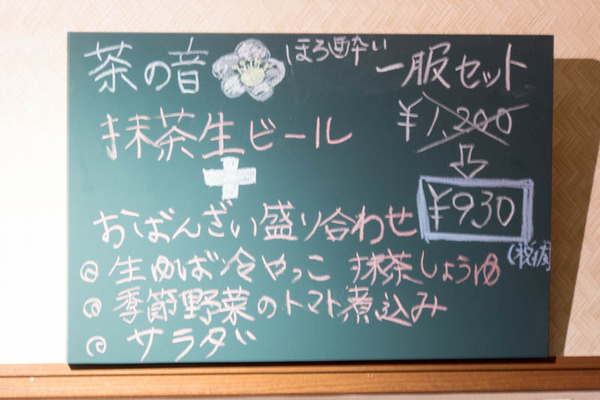 茶の音 ほろ酔い 一服セット
抹茶生ビール ¥1,200
+
¥930
おばんざい盛り合わせ
生ゆば冷やっこ 抹茶しょうゆ
季節野菜のトマト煮込み
サラダ